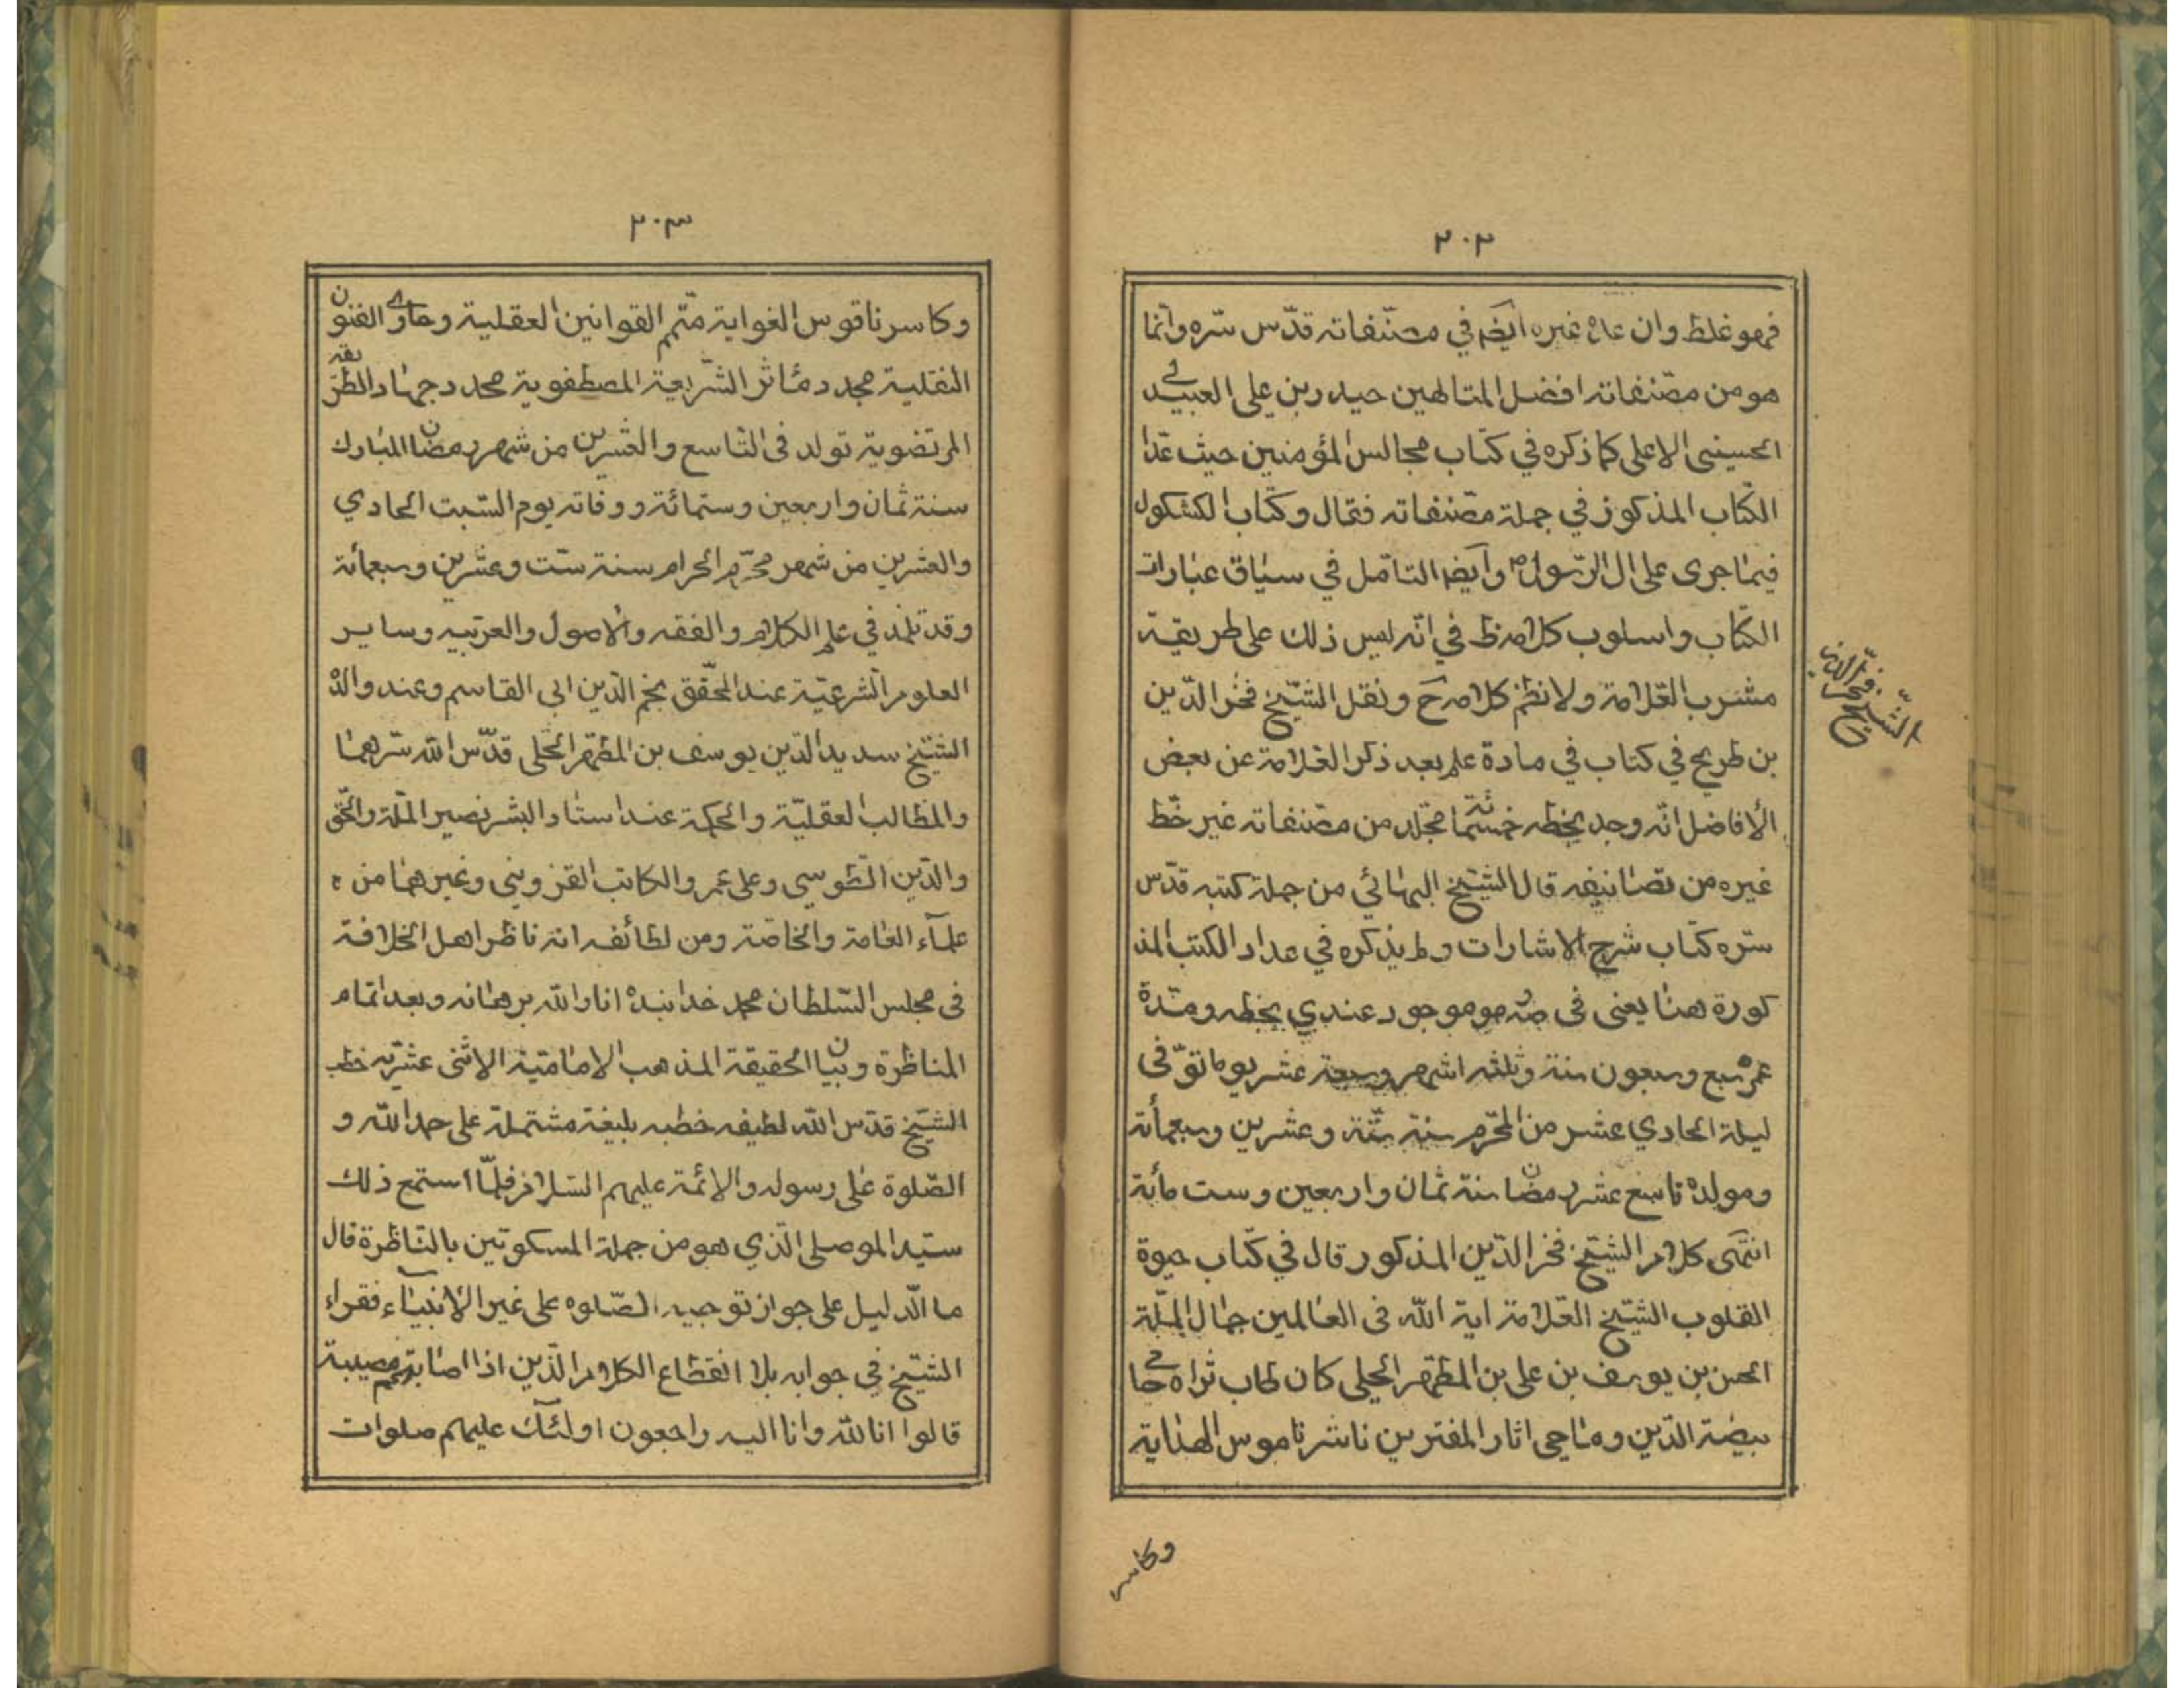 ٢٠٢
فهو غلط وان عده غيره ايضم في مصنّفاته قدّس سّره وانّما
هو من مصّنفاته افضل المتالهين حيدر بن على العبيدے
الحسيني الاعلى كما ذكره في كتاب مجالس المؤمنين حيث عدّا
الكتاب المذكور في جملة مصّنفاته فقال وكتاب الكشكول
فيما جرى على ال الرّسول ص وايضم التامّل في سياق عبارات
الكتاب واسلوب كلامه ظ في انّه ليس ذلك على طريقة
مشرب العّلامة ولا نظم كلامه ح ونقل الشيّخ فخر الدّين
بن طريح في كتاب في مادة علم بعد ذكر العّلامة عن بعض
الأفاضل انّه وجد بخطه خمسمائة مجّلد من مصّنفاته غير خّط
غيره من تصانيفه قال الشيّخ البهائي من جملة كتبه قدّس
سّره كتاب شرح الاشارات ولم يذكره في عداد الكتب المذ
كورة هنا يعنى فى صه وهو موجود عندي بخطه ومّدة
عمره سبع وسبعون سنة وثلثه اشهر وسبعة عشر يوما توّفى
ليلة الحادي عشر من المحّرم سنة ستّة وعشرين وسبعمأئة
ومولده تاسع عشر رمضان سنة ثمان واربعين وست مائة
انتهى كلام الشيّخ فخر الدّين المذكور قال في كتاب حيوة
القلوب الشيّخ العّلامة اية الله فى العالمين جمال الملّة
الحسن بن يوسف بن على بن المطّهر الحلى كان طاب ثراه حامے
بيضة الدّين وماحى اثار المفترين ناشر ناموس الهداية
الشيّخ فخّر الدين
وكاسر
٢٠٣
وكاسر ناقوس الغواية متّمم القوانين العقلية وحاوے الفنون
النقلية مجدد مئاثر الشّريعة المصطفوية محدد جهاد الطّريقة
المرتضوية تولد فى التاسع والعشرين من شهر رمضان المبارك
سنة ثمان واربعين وستمائة ووفاته يوم السّبت الحادي
والعشرين من شهر محّرم الحرام سنة ستّ وعشرين وسبعمأئة
وقد تلمذ في علم الكلام والفقه والاصول والعربّيه وساير
العلوم الشرعيّة عند المحّقق نجم الدّين ابى القاسم وعند والدْه
الشيّخ سديد الدّين يوسف بن المطّهر الحّلى قدّس الله سّرهما
والمطالب العقليّة والحكمة عند استاد البشر نصير الملّة والحّق
والدّين الطّوسي وعلى عمر والكاتب القزويني وغيرهما من
علمآء العامة والخاصّة ومن لطائفه انه ناظر اهل الخلافة
فى مجلس السّلطان محمد خدا بندْه انار الله برهانه وبعد اتمام
المناظرة وبيان الحقيقة المذهب الاماميّة الاثنى عشريّه خطب
الشيّخ قدّس الله لطيفه خطبه بليغة مشتملة على حمد الله و
الصّلوة على رسوله والائمة عليهم السّلام فلمّا استمع ذلك
سيّد الموصلى الّذي هو من جملة المسكوتين بالمناظرة قال
ما الّدليل على جواز توجيه الصّلوه على غير الأنبيآء فقراء
الشيّخ في جوابه بلا انقطاع الكلام الّذين اذا اصابتهم مصيبة
قالوا انا لله وانا اليه راجعون اولئك عليهم صلوات